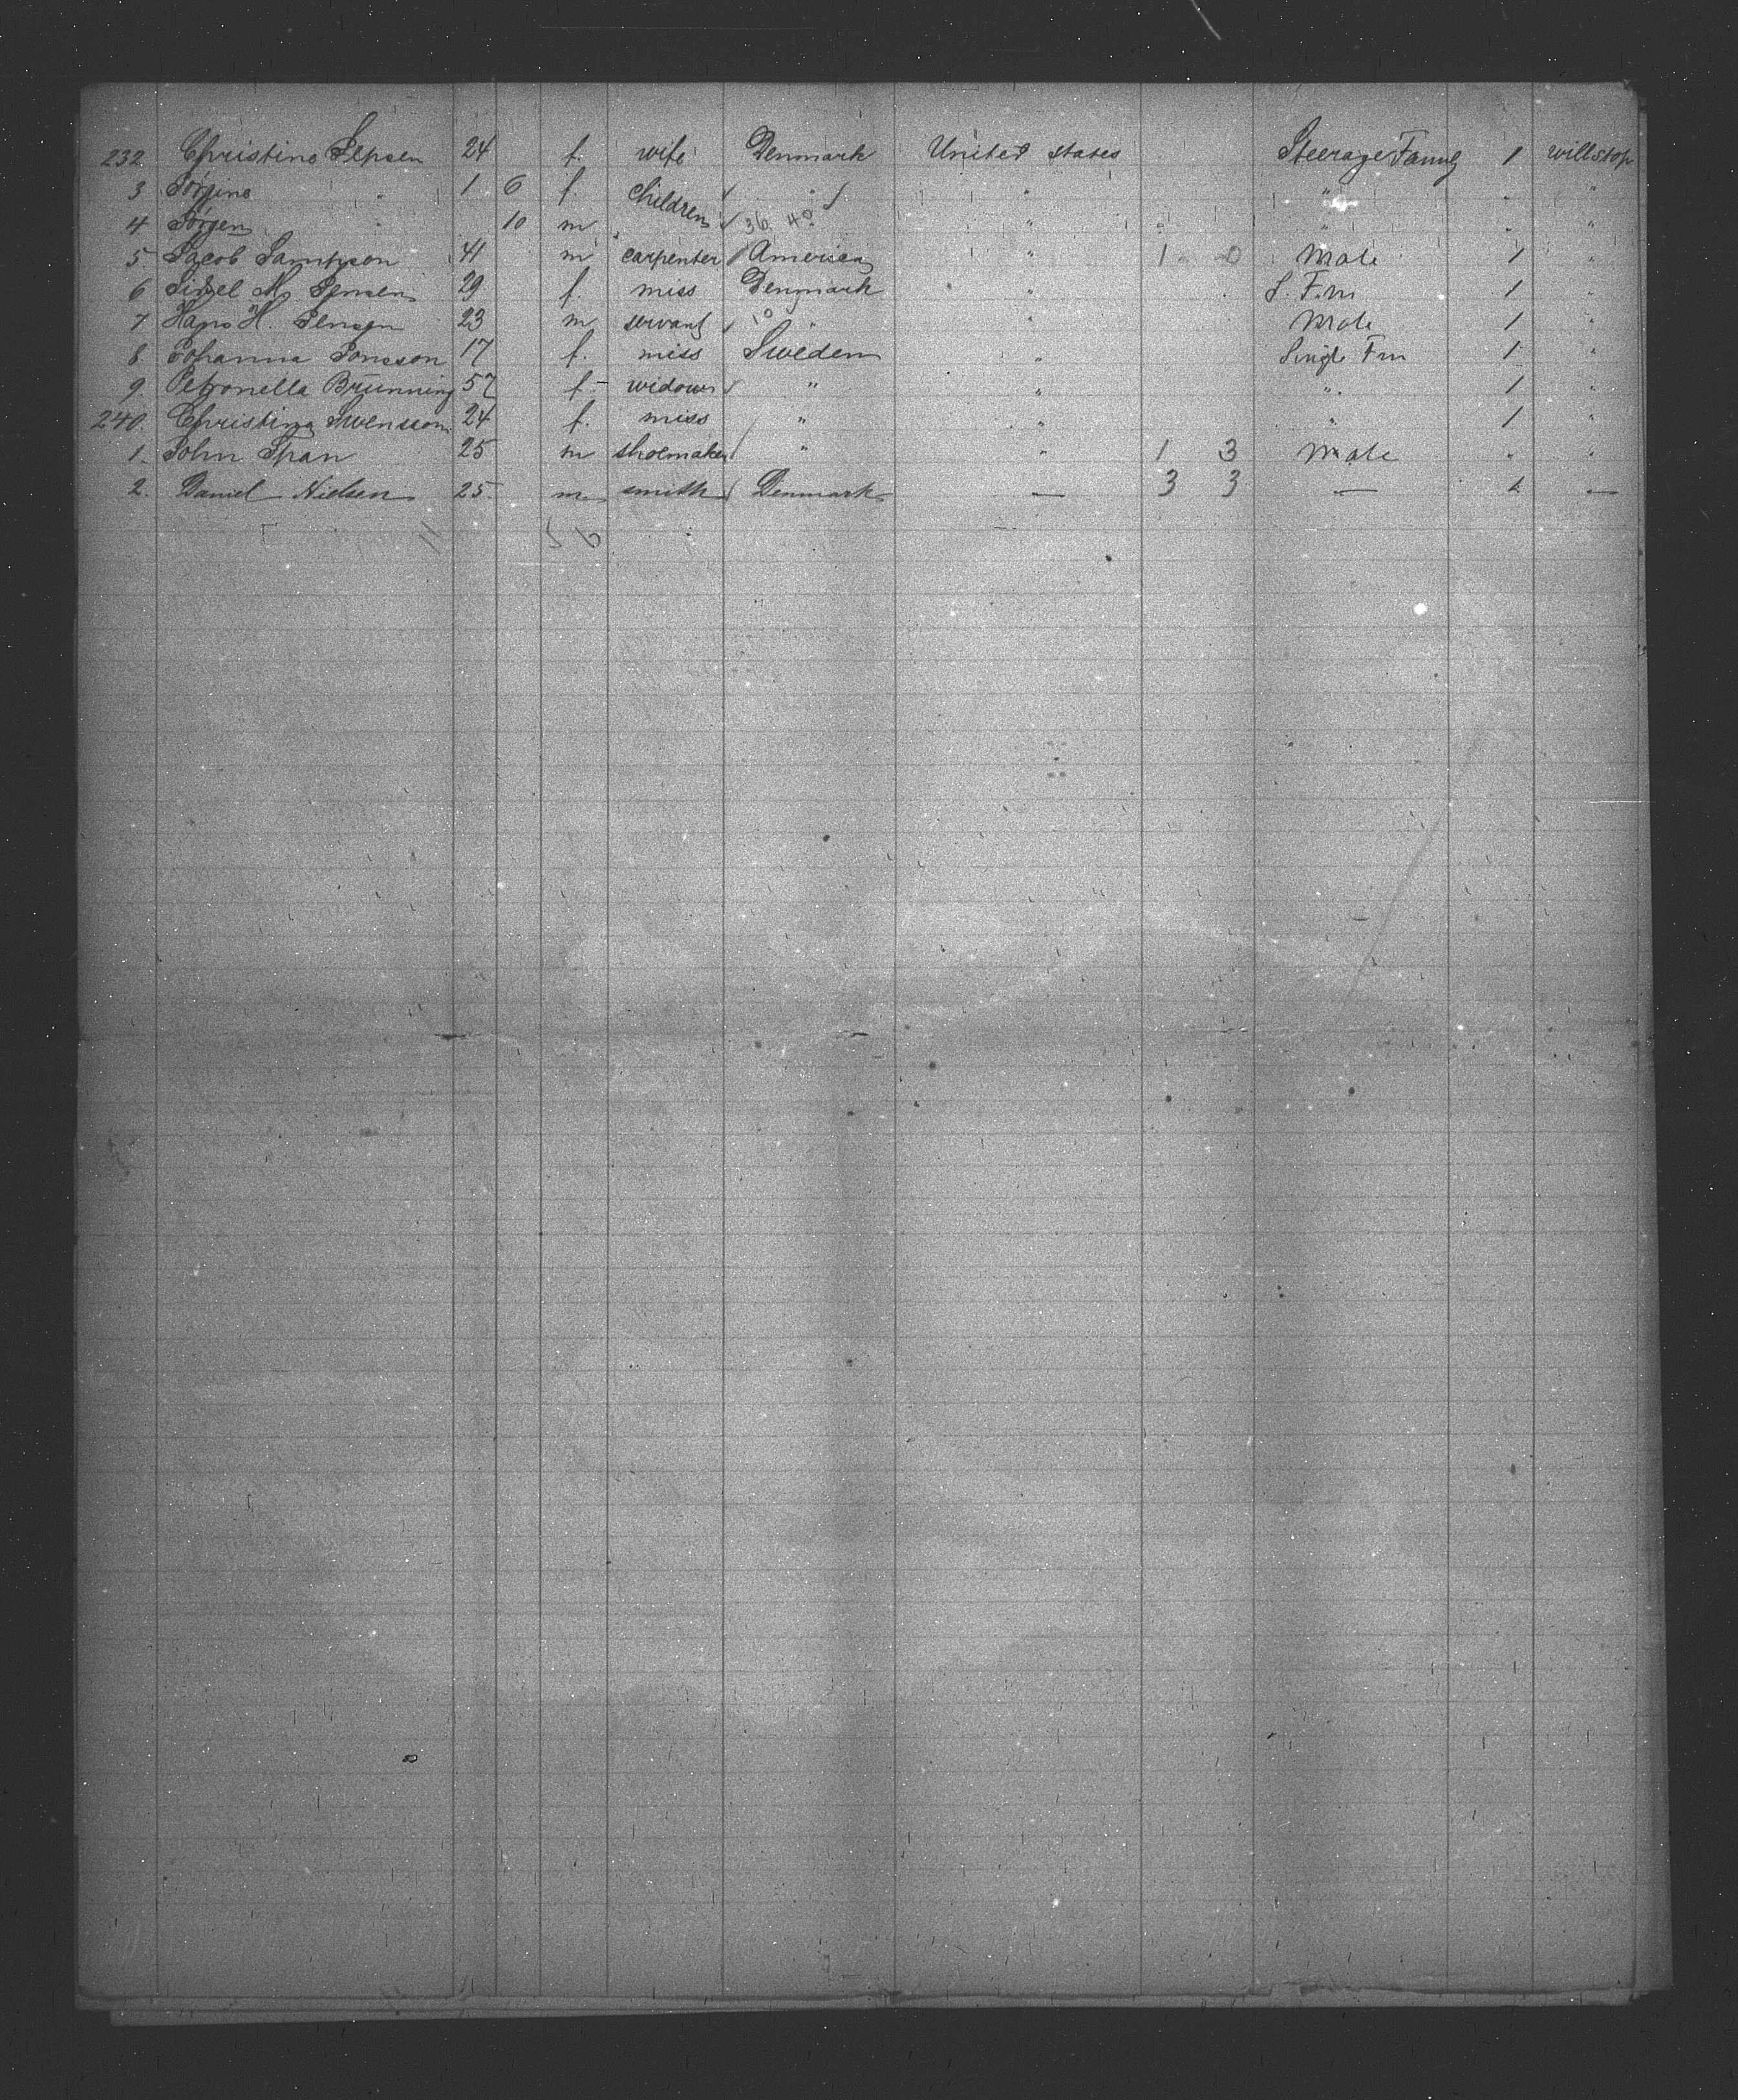 232 Christine Jepsen 24 f. wife Denmark United States Steerage Family 1 will stop
3 Jörgine " 1 6 f. children " " " " "
4 Jörgen " 10 m " 36 40 " " " "
5 Jacob Sampson 41 m carpenter America " 1 0 Male 1 "
6 Sidsel M. Jensen 29 f. miss Denmark " S. Fm 1 "
7 Hans H. Jensen 23 m servant 10 " " Male 1 "
8. Johanna Jonsson 17 f. miss Sweden " Single Fm 1 "
9. Petronella Brünning 57 f. widow " " " 1 "
240. Christina Swensson 24 f. miss " " " 1 "
1. John Span 25 m shoemaker " " 1 3 Male " "
2. Daniel Nielsen 25. m. smith Denmark — 3 3 — 1 —
11 5 6